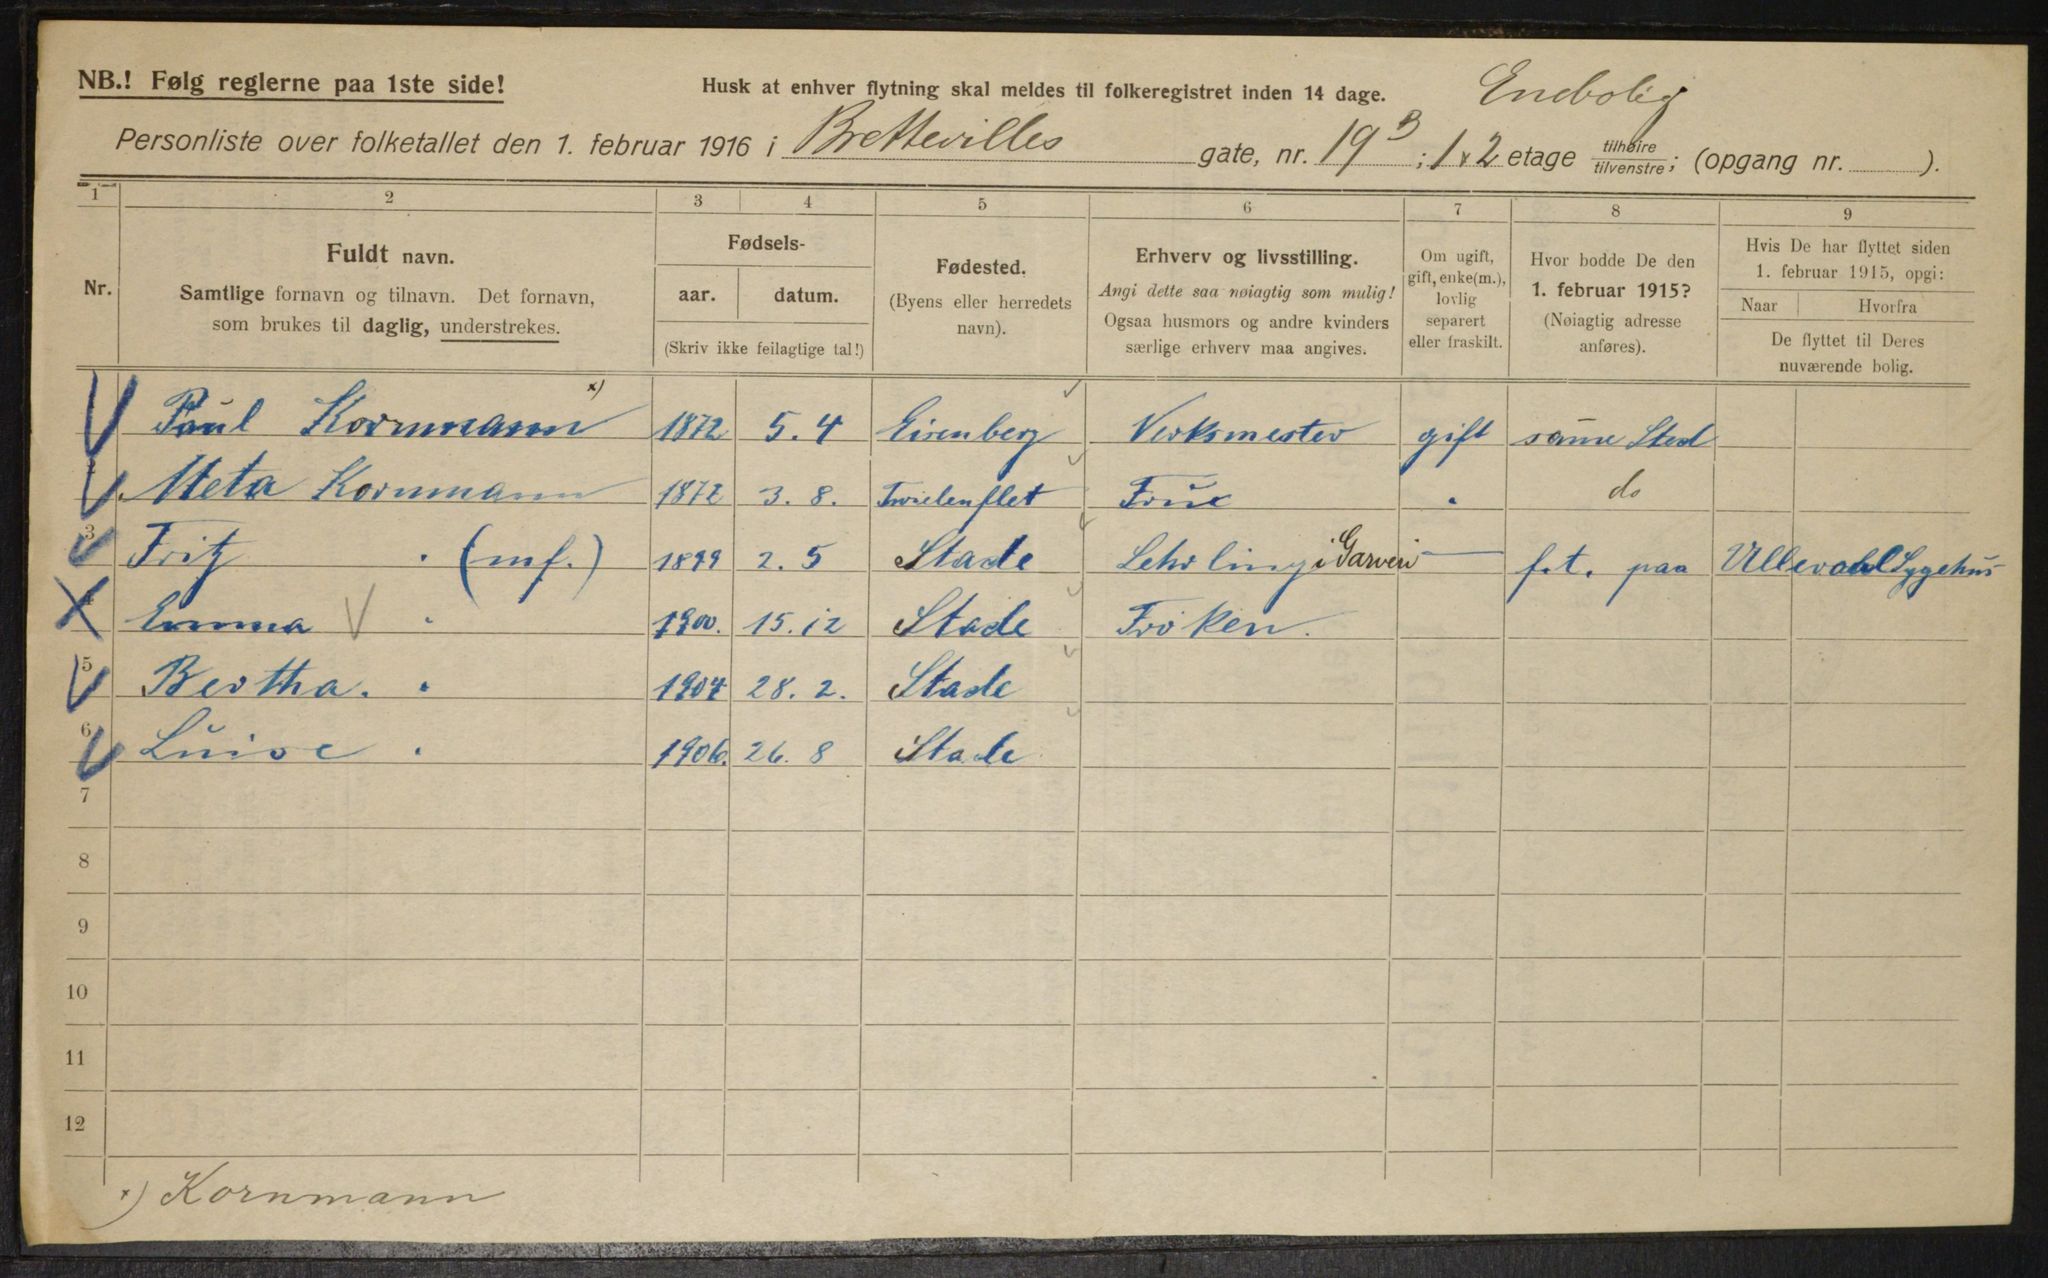 NB.! Følg reglerne paa 1ste side!
Husk at enhver flytning skal meldes til folkeregistret inden 14 dage.
Enebolig
Personliste over folketallet den 1. februar 1916 i Brettevilles gate, nr. 19 B ; 1 + 2 etage tilhøire tilvenstre; (opgang nr. ).
1 2 3 4 5 6 7 8 9
Nr.
Fuldt navn.
Samtlige fornavn og tilnavn. Det fornavn,
som brukes til daglig, understrekes.
Fødsels-
aar. datum.
(Skriv ikke feilagtige tal!)
Fødested.
(Byens eller herredets
navn).
Erhverv og livsstilling.
Angi dette saa nøiagtig som mulig!
Ogsaa husmors og andre kvinders
særlige erhverv maa angives.
Om ugift,
gift, enke(m.),
lovlig
separert
eller fraskilt.
Hvor bodde De den
1. februar 1915?
(Nøiagtig adresse
anføres).
Hvis De har flyttet siden
1. februar 1915, opgi:
Naar Hvorfra
De flyttet til Deres
nuværende bolig.
Paul Kornmann x) 1872 5.4 Eisenberg Verksmester gift same Sted
Meta Kornmann 1872 3.8. Twielenflet Frue " do
3 Fritz " (mf.) 1899 2.5 Stade Lehrling i Garveri — f.t. paa Ullevaal Sygehus
4 Emma " 1900. 15.12 Stade Fröken.
5 Bertha. " 1904 28.2. Stade
6 Luise " 1906. 26.8 Stade
7
8
9
10
11
12
x) Kornmann